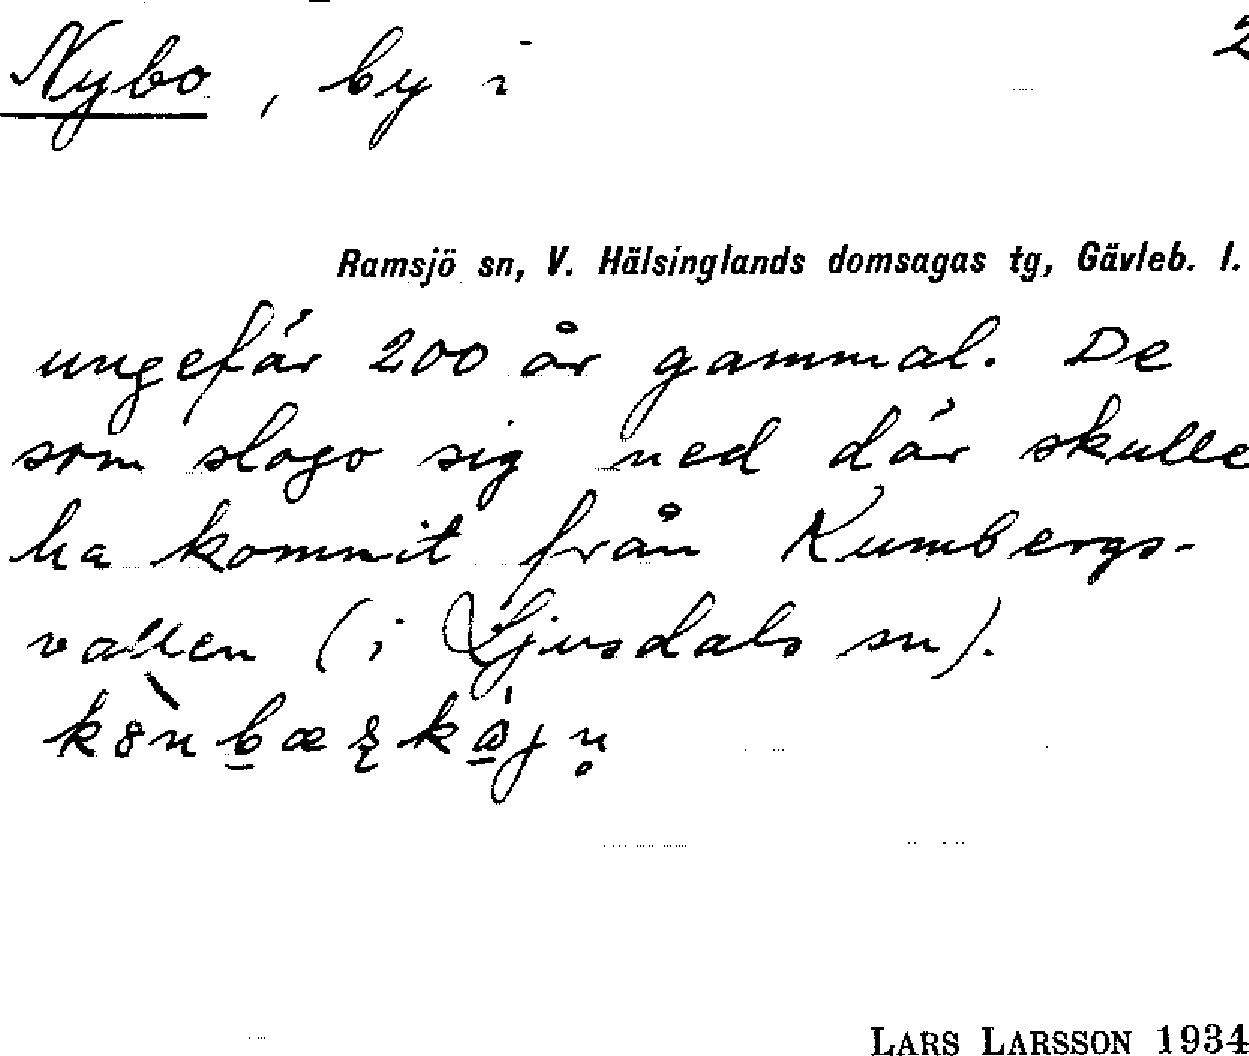 Nybo, by i 2
Ramsjö sn, V. Hälsinglands domsagas tg, Gävleb. l.
ungefär 200 år gammal. De
som slogo sig ned där skulle
ha kommit från Kumbergs-
vallen (i Ljusdals sn).
LARS LARSSON 1934